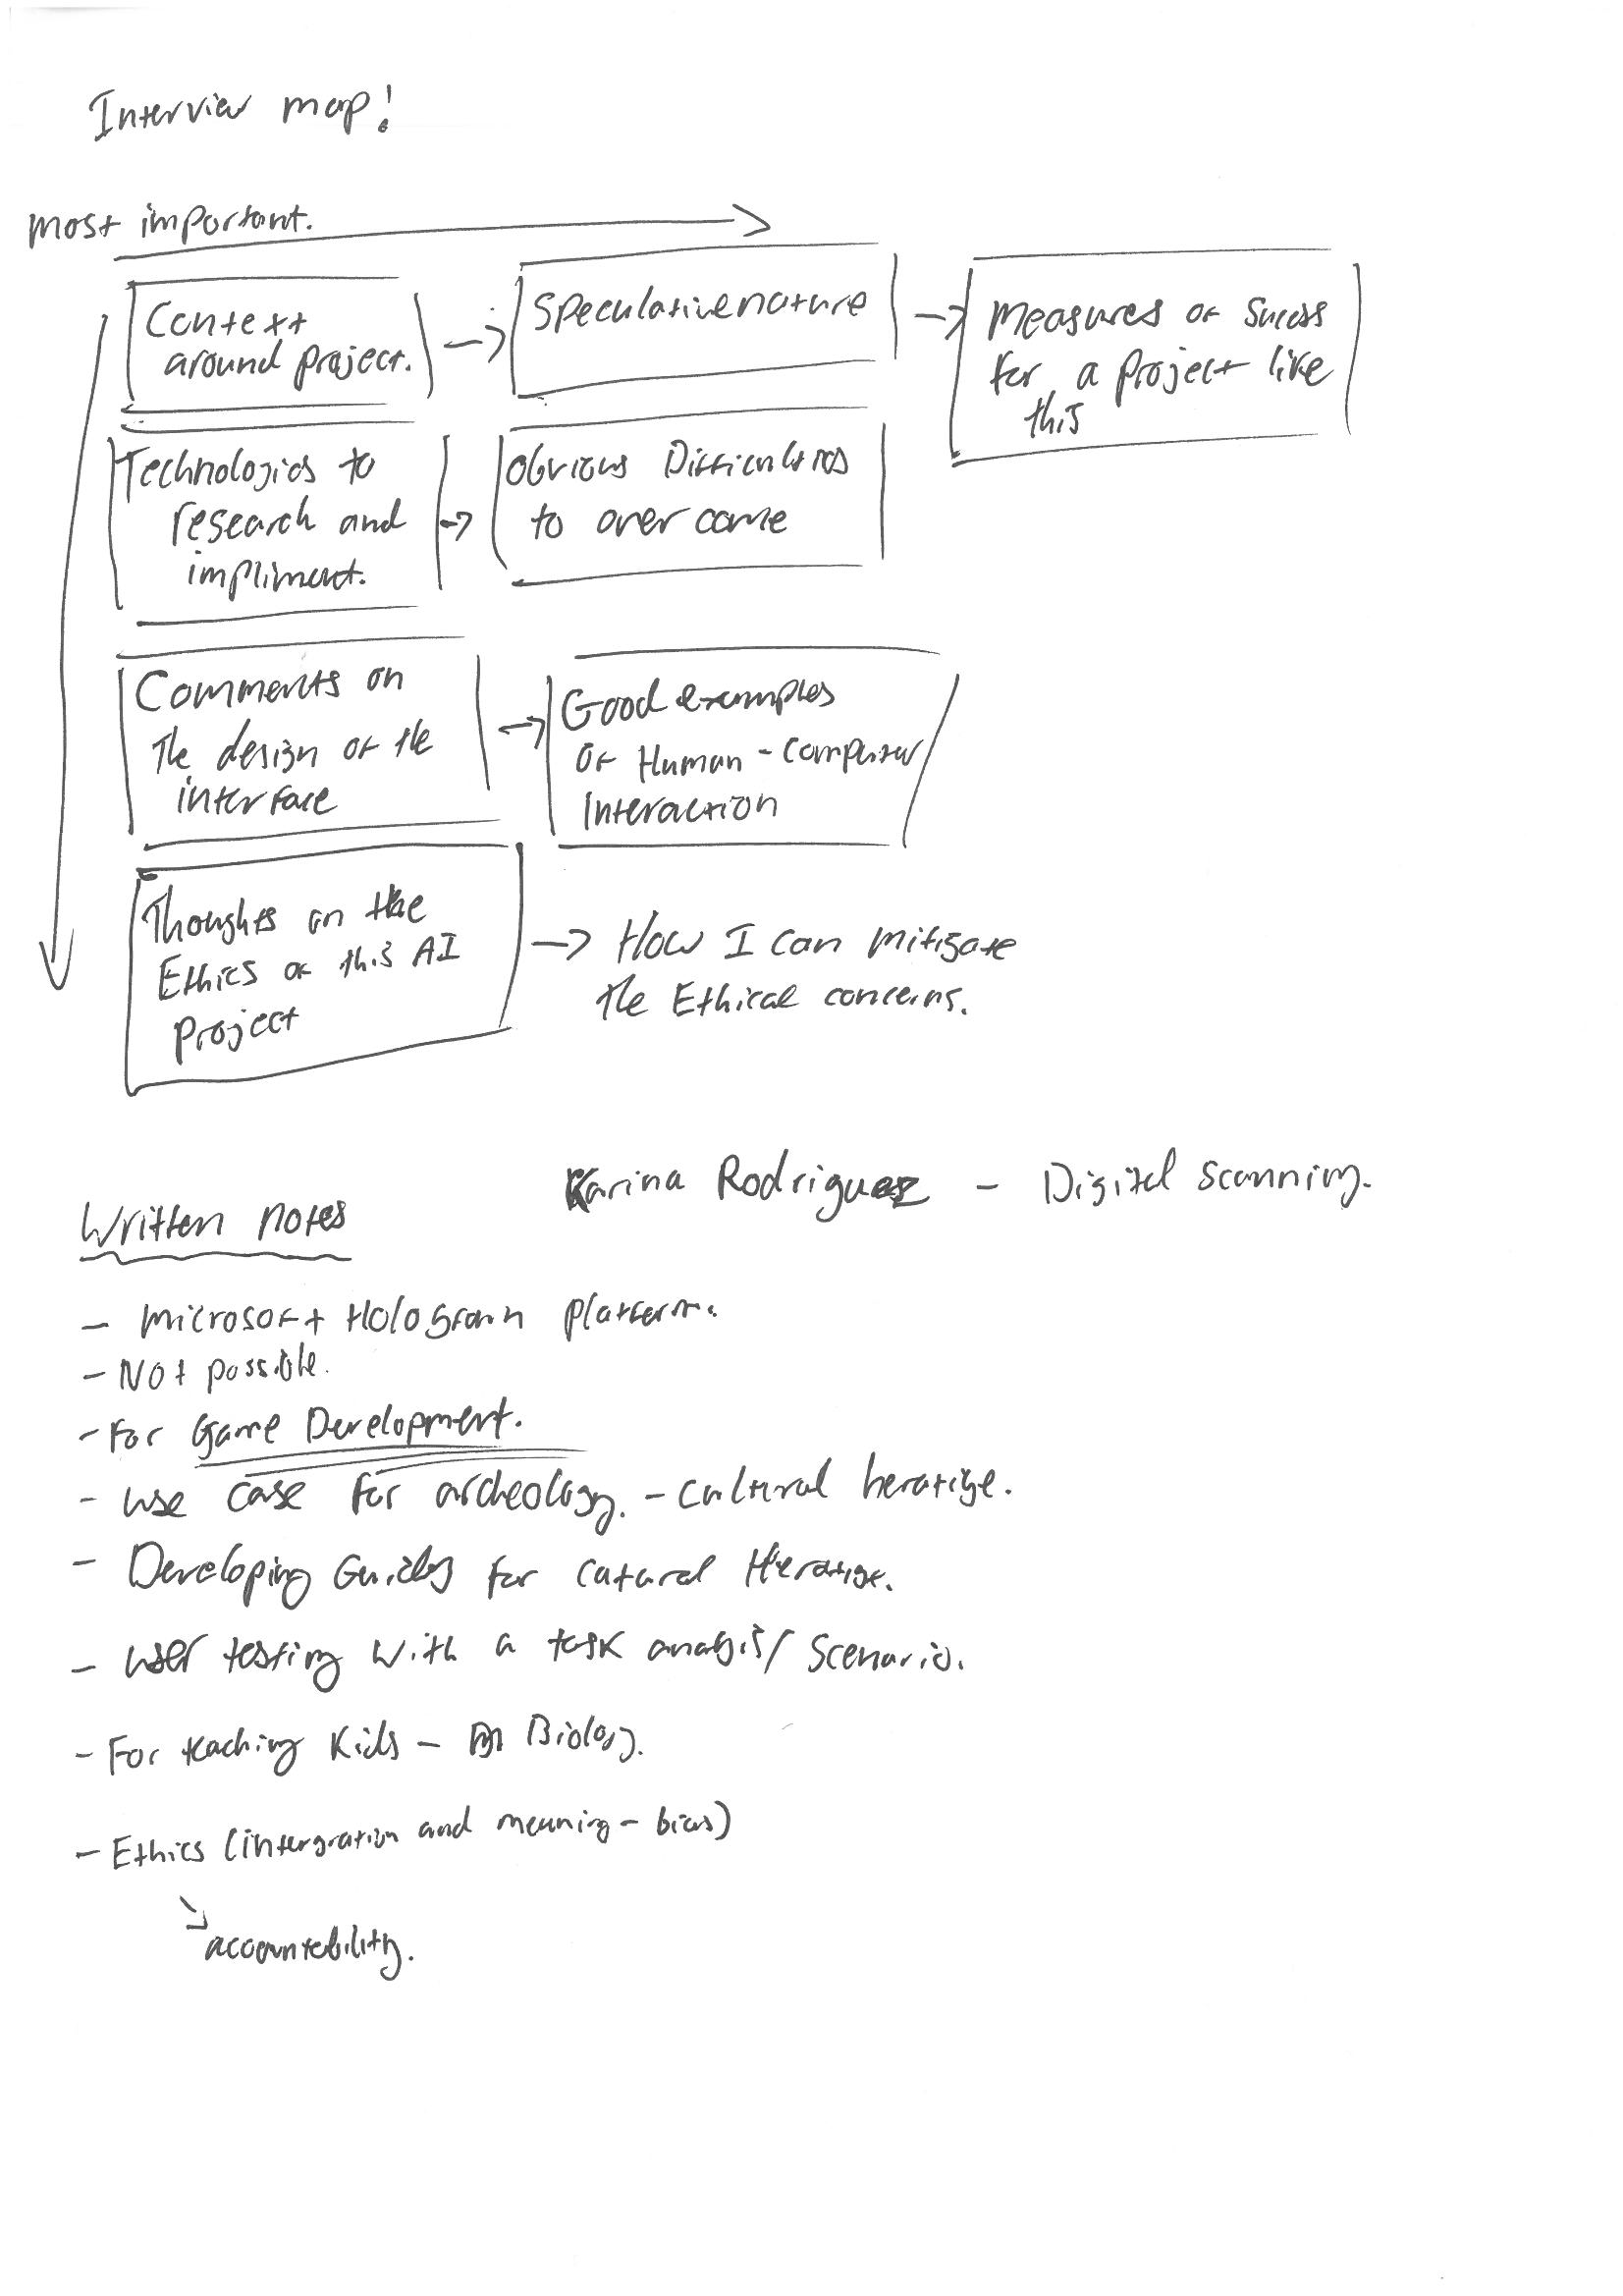 Interview map!
most important.
Context
around project.
Speculative nature
Measures of Sucess
for a project like
this
Technologies to
research and
impliment.
Obvious Difficulties
to over come
Comments on
the design of the
interface
Good examples
of Human - Computer
Interaction
Thoughts on the
Ethics of this AI
project
How I can mitigate
the Ethical concerns.
Karina Rodriguez - Digital Scanning.
Written notes
- Microsoft Hologram platform.
- Not possible.
- For Game Development.
- use case for archeology. - cultural heratige.
- Developing Guides for Catural Heratige.
- user testing with a task analysis / Scenario.
- For teaching Kids - Biology.
- Ethics (intergration and meaning - bias)
accountebility.